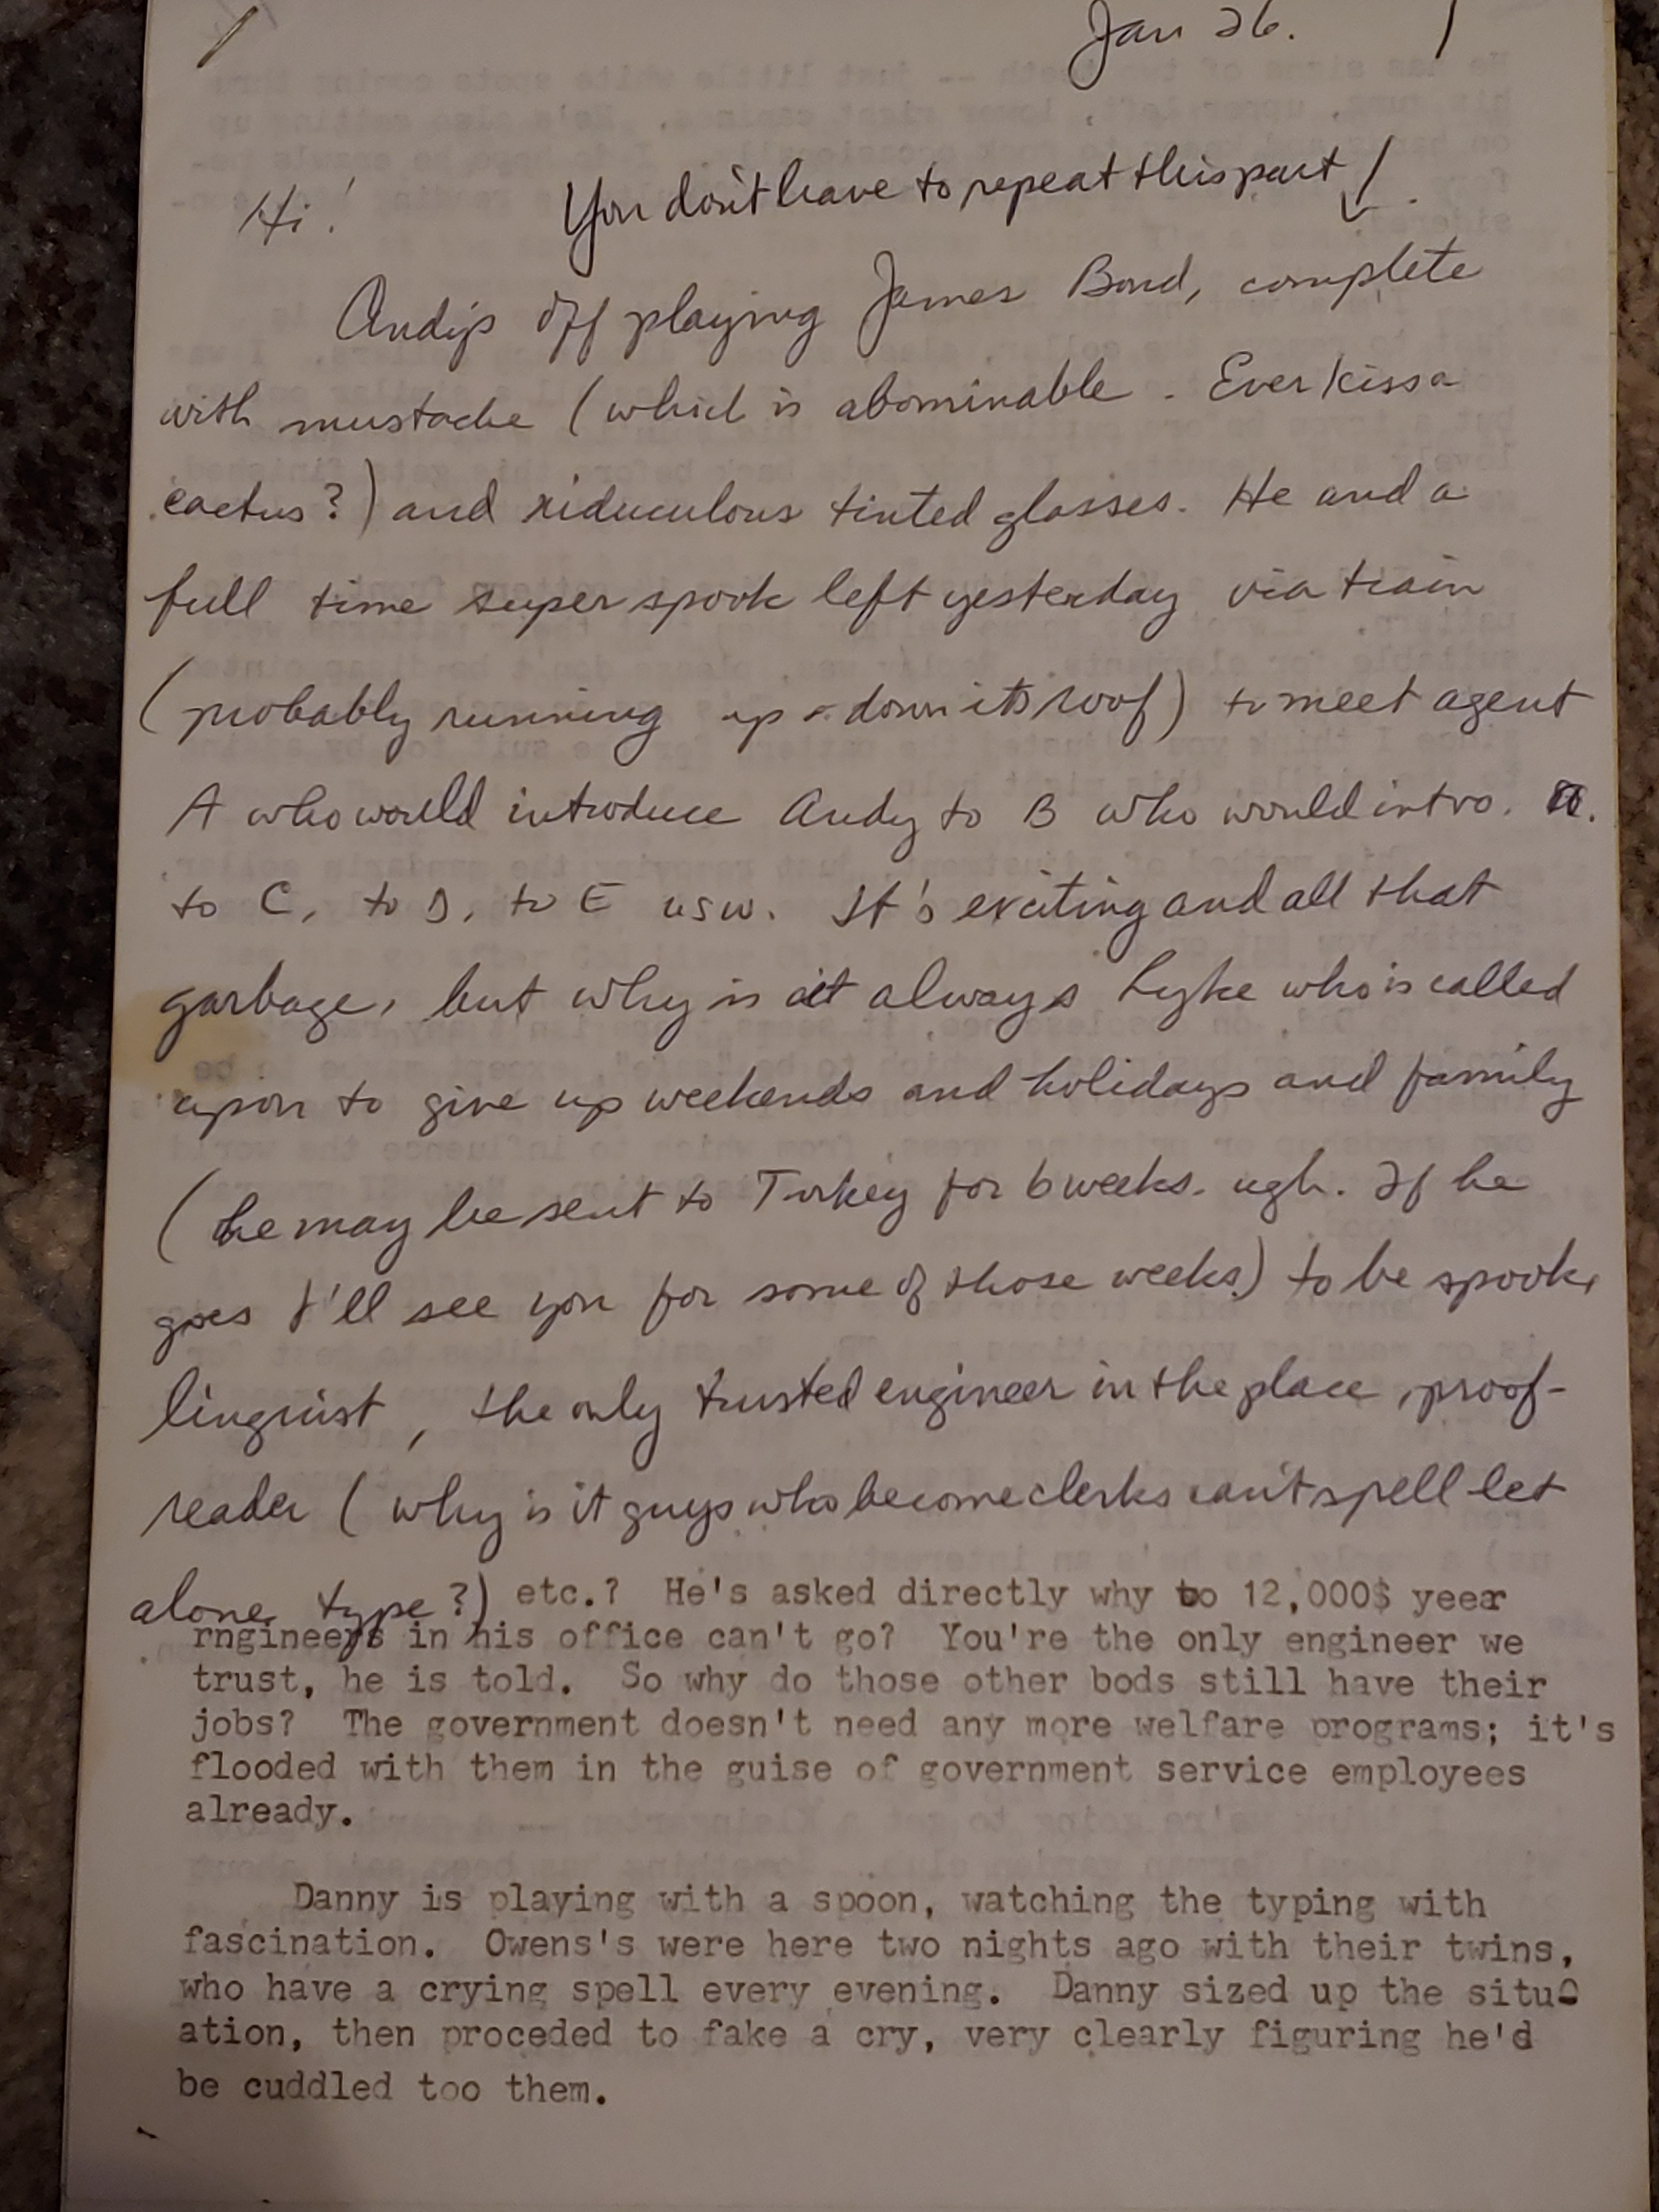 Jan 26.
Hi! You don't have to repeat this part!
Andy's off playing James Bond, complete
with mustache (which is abominable. Ever kiss a
cactus?) and riduculous tinted glasses. He and a
full time super spook left yesterday via train
(probably running up & down its roof) to meet agent
A who would introduce Andy to B who would intro. A.
to C, to D, to E usw. It's exciting and all that
garbage, but why is it always Lyke who is called
upon to give up weekends and holidays and family
(he may be sent to Turkey for 6 weeks. ugh. If he
goes I'll see you for some of those weeks.) to be spook,
linguist, the only trusted engineer in the place, proof-
reader (why is it guys who become clerks can't spell let
alone type?) etc.? He's asked directly why to 12,000$ yeer
rngineers in his office can't go? You're the only engineer we
trust, he is told. So why do those other bods still have their
jobs? The government doesn't need any more welfare programs; it's
flooded with them in the guise of government service employees
already.
Danny is playing with a spoon, watching the typing with
fascination. Owens's were here two nights ago with their twins,
who have a crying spell every evening. Danny sized up the situ-
ation, then proceded to fake a cry, very clearly figuring he'd
be cuddled too them.